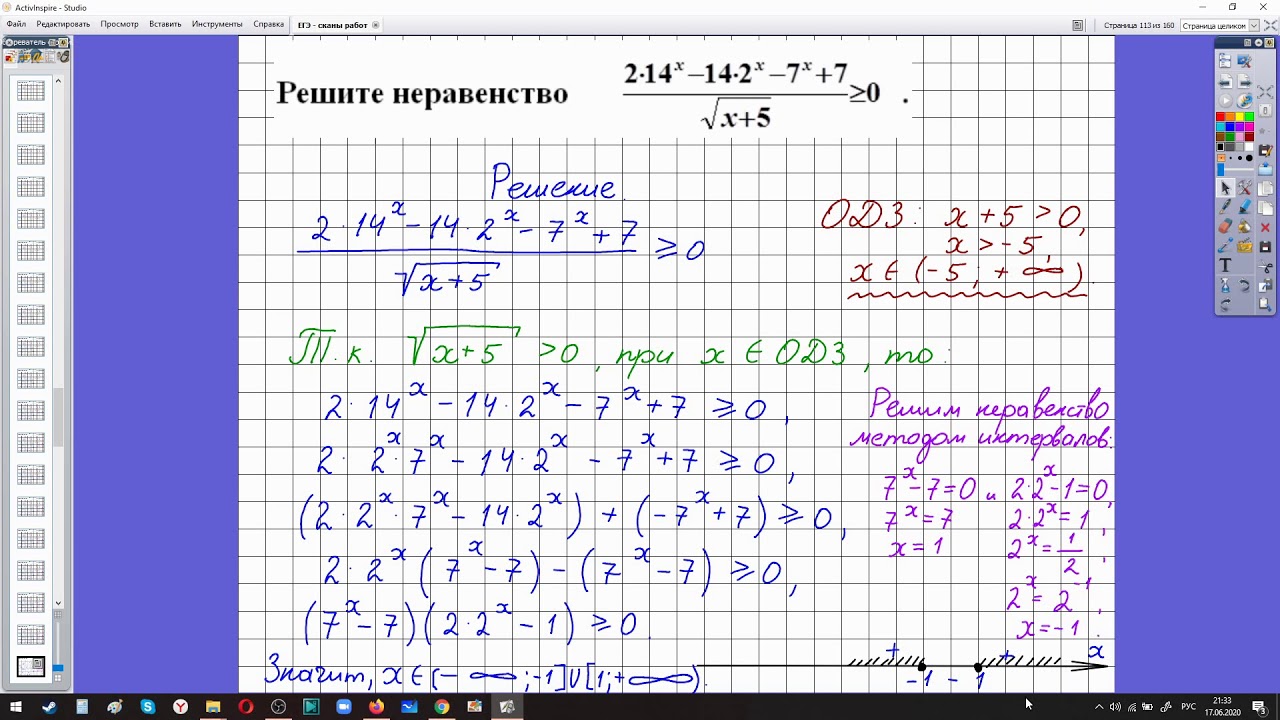 ActivInspire - Studio
Файл Редактировать Просмотр Вставить Инструменты Справка ЕГЭ - сканы работ
Страница 113 из 160 Страница целиком
Решите неравенство (2·14^x−14·2^x−7^x+7)/√(x+5) ≥0 .
Решение
(2·14^x − 14·2^x − 7^x + 7)/√(x+5) ≥ 0
ОДЗ: x + 5 > 0,
x > −5,
x ∈ (−5; +∞).
Т.к. √(x+5) > 0, при x ∈ ОДЗ, то:
2·14^x − 14·2^x − 7^x + 7 ≥ 0,
2·2^x·7^x − 14·2^x − 7^x + 7 ≥ 0,
(2·2^x·7^x − 14·2^x) + (−7^x + 7) ≥ 0,
2·2^x(7^x − 7) − (7^x − 7) ≥ 0,
(7^x − 7)(2·2^x − 1) ≥ 0.
Решим неравенство
методом интервалов:
7^x − 7 = 0 и 2·2^x − 1 = 0,
7^x = 7 2·2^x = 1,
x = 1 2^x = 1/2,
2^x = 2^−1,
x = −1.
+ + x
−1 − 1
Значит, x ∈ (−∞; −1]∪[1; +∞).
РУС
21:33
17.06.2020